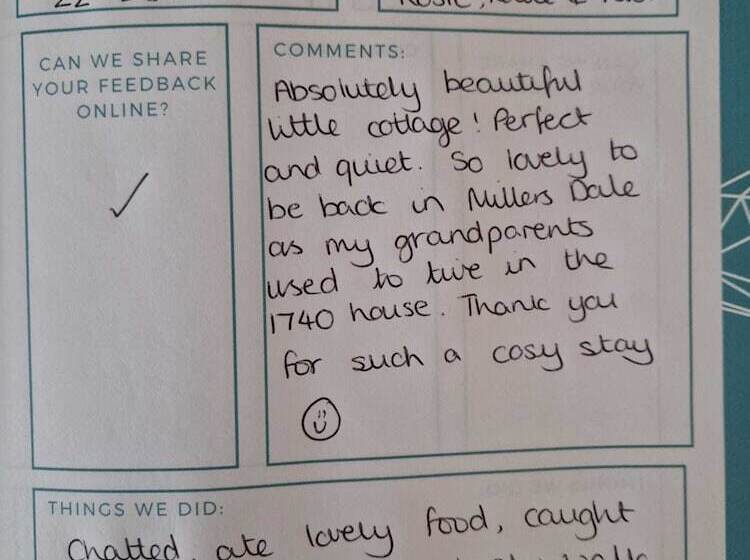 CAN WE SHARE
YOUR FEEDBACK
ONLINE?
COMMENTS:
Absolutely beautiful
little cottage! Perfect
and quiet. So lovely to
be back in Millers Dale
as my grandparents
used to live in the
1740 house. Thank you
for such a cosy stay
THINGS WE DID:
Chatted, ate lovely food, caught